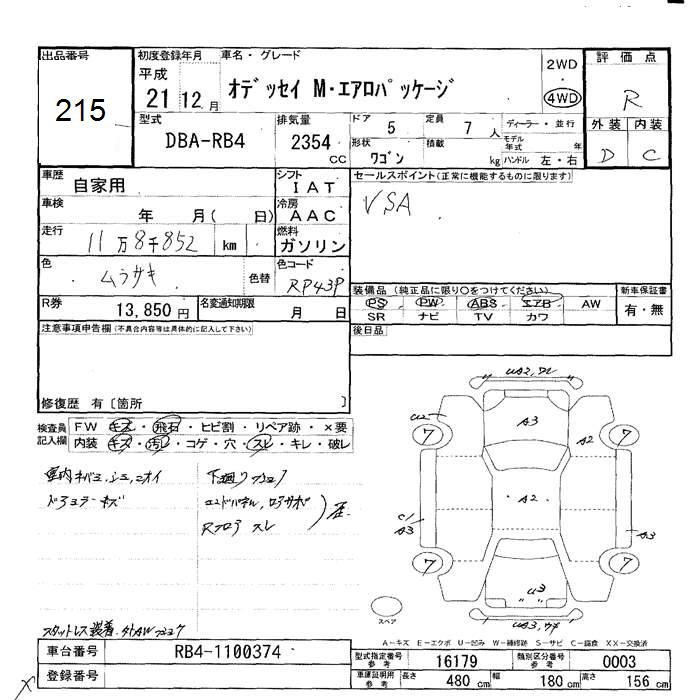 出品番号
215
初度登録年月
平成
21 12 月
車名・グレード
オデッセイ M・エアロパッケージ
2WD
・
4WD
評価点
R
外装 内装
D C
型式
DBA-RB4
排気量
2354
CC
ドア 5
定員 7 人
ディーラー・並行
形状 ワゴン
積載 kg
モデル年式 年
ハンドル 左・右
車歴 自家用
シフト
IAT
セールスポイント(正常に機能するものに限ります)
VSA
車検
年 月( 日)
冷房
AAC
走行
11万8千852 km
燃料
ガソリン
色 ムラサキ
色替
色コード
RP43P
装備品(純正品に限り○をつけてください)
PS PW ABS エアB AW
SR ナビ TV カワ
新車保証書
有・無
R券
13,850 円
名変通知期限
月 日
後日品
注意事項申告欄(不具合内容等は具体的に記入して下さい)
修復歴 有〔箇所 〕
検査員記入欄
FW キズ・飛石・ヒビ割・リペア跡・×要
内装 キズ・汚レ・コゲ・穴・スレ・キレ・破レ
下廻り
エンドパネル,
Rフロア スレ
スタットレス装着
A3
A2
7
7
A2
C1
A3
A3
7
7
U3
スペア
A-キズ E-エクボ U-凹み W-補修跡 S-サビ C-腐食 XX-交換済
車台番号
RB4-1100374
登録番号
型式指定番号
参考
16179
類別区分番号
参考
0003
車庫証明用
参考
長さ 480 cm
幅 180 cm
高さ 156 cm